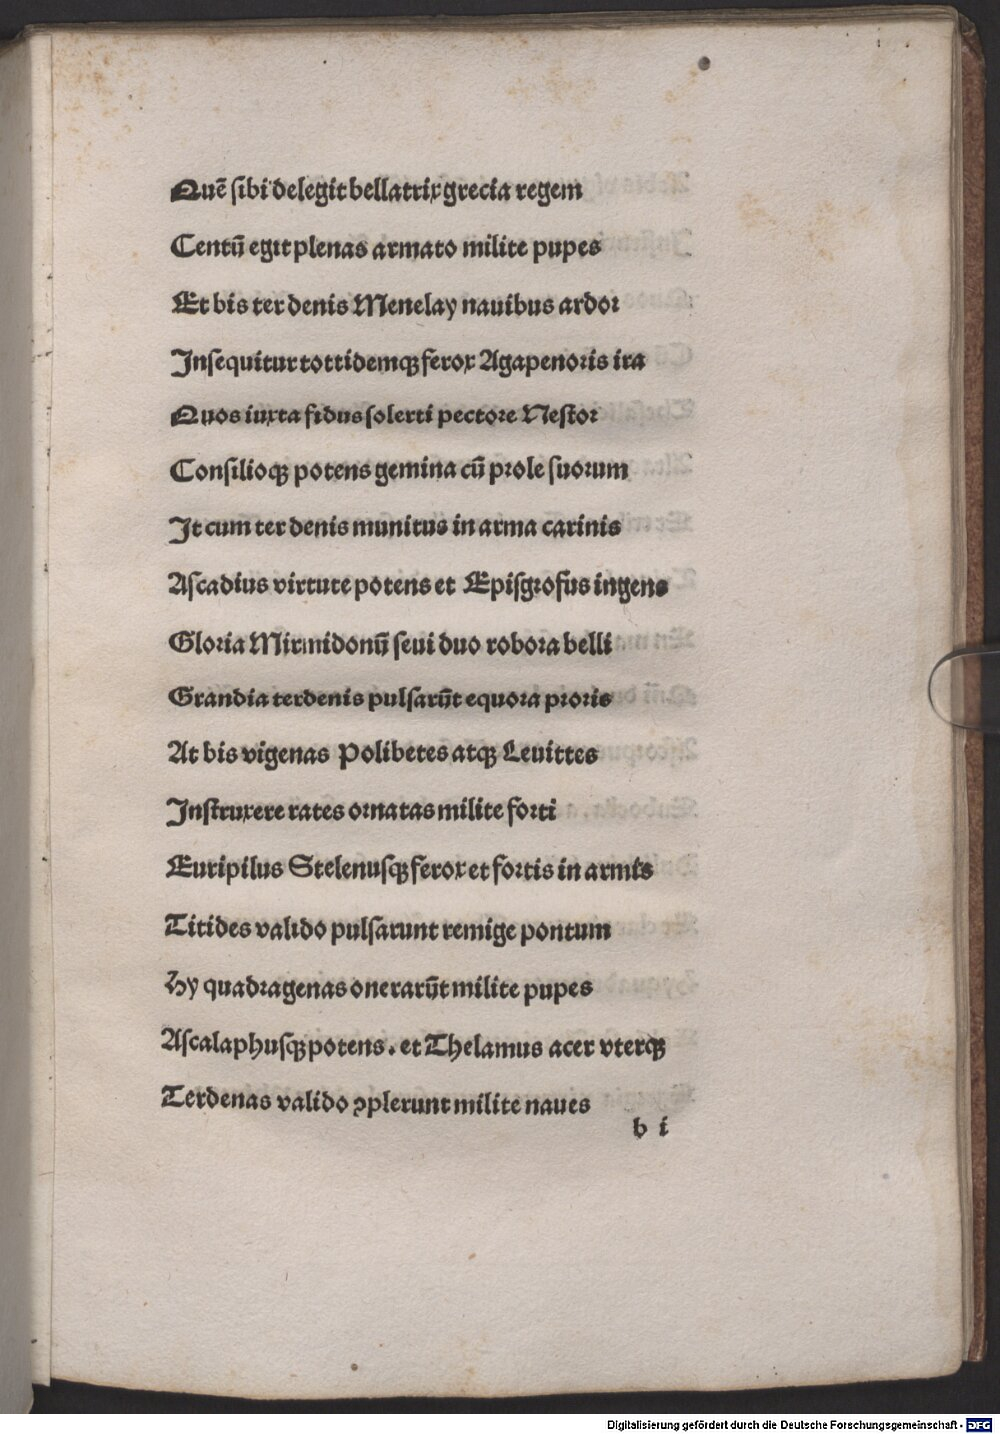 Quē ſibi delegit bellatrix grecia regem
Centū egit plenas armato milite pupes
Et bis ter denis Menelay nauibus ardoꝛ
Inſequitur tottidemqꝫ ferox Agapenoꝛis ira
Quos iuxta fidus ſolerti pectoꝛe Neſtoꝛ
Conſilioqꝫ potens gemina cū pꝛole ſuoꝛum
It cum ter denis munitus in arma carinis
Aſcadius virtute potens et Epiſgꝛofus ingens
Gloꝛia Mirmidonū ſeui duo roboꝛa belli
Grandia terdenis pulſarūt equoꝛa pꝛoꝛis
At bis vigenas Polibetes atqꝫ Leuittes
Inſtruxere rates oꝛnatas milite foꝛti
Euripilus Stelenuſqꝫ ferox et foꝛtis in armis
Titides valido pulſarunt remige pontum
Hy quadꝛagenas onerarūt milite pupes
Aſcalaphuſqꝫ potens. et Thelamus acer vterqꝫ
Terdenas valido ꝯplerunt milite naues
b i
Digitalisierung gefördert durch die Deutsche Forschungsgemeinschaft - DFG